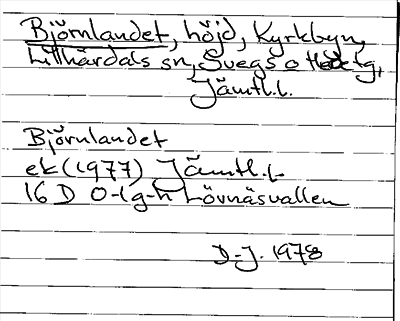 Björnlandet, höjd, Kyrkbyn,
Lillhärdals sn, Svegs o Hede tg,
Jämtl.l.
Björnlandet
ek (1977) Jämtl.l.
16 D 0-1g-h Lövnäsvallen
D-J. 1978